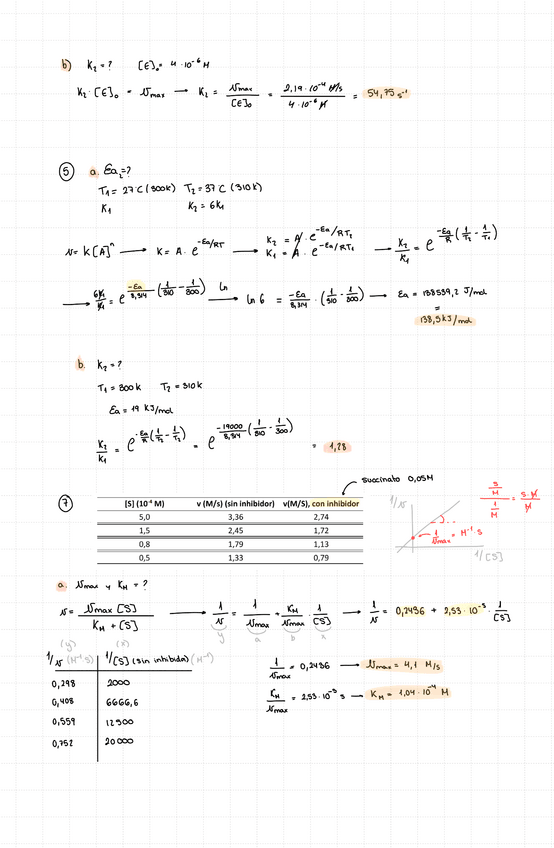 b) K₂ = ? [E]₀ = 4·10⁻⁶ M
K₂·[E]₀ = Vmax → K₂ = Vmax / [E]₀ = 2,19·10⁻⁴ M/s / 4·10⁻⁶ M = 54,75 s⁻¹
5 a. Ea₂=?
T₁ = 27 C (300K) T₂ = 37 C (310K)
K₁ K₂ = 6K₁
v = K[A]ⁿ → K = A · e^(-Ea/RT) → K₂ = A · e^(-Ea/RT₂) K₁ = A · e^(-Ea/RT₁) → K₂/K₁ = e^(-Ea/R (1/T₂ - 1/T₁))
→ 6K₁/K₁ = e^(-Ea/8,314 (1/310 - 1/300)) ln → ln 6 = -Ea/8,314 · (1/310 - 1/300) → Ea = 138539,2 J/mol
=
138,5 KJ/mol
b. K₂ = ?
T₁ = 300K T₂ = 310K
Ea = 19 KJ/mol
K₂/K₁ = e^(-Ea/R (1/T₂ - 1/T₁)) = e^(-19000/8,314 (1/310 - 1/300)) = 1,28
succinato 0,05M
7
[S] (10⁻⁴ M) v (M/s) (sin inhibidor) v(M/s), con inhibidor
5,0 3,36 2,74
1,5 2,45 1,72
0,8 1,79 1,13
0,5 1,33 0,79
1/v
1/Vmax = M⁻¹·S
1/[S]
S/M / 1/M = S·M/M
a. Vmax y KM = ?
v = Vmax [S] / KM + [S] → 1/v = 1/Vmax + KM/Vmax · 1/[S] → 1/v = 0,2436 + 2,53·10⁻⁵ · 1/[S]
y a b x
(y) (x)
1/v (M⁻¹S) 1/[S] (sin inhibida) (M⁻¹)
0,298 2000
0,408 6666,6
0,559 12500
0,752 20000
1/Vmax = 0,2436 → Vmax = 4,1 M/s
KM/Vmax = 2,53·10⁻⁵ s → KM = 1,04·10⁻⁴ M